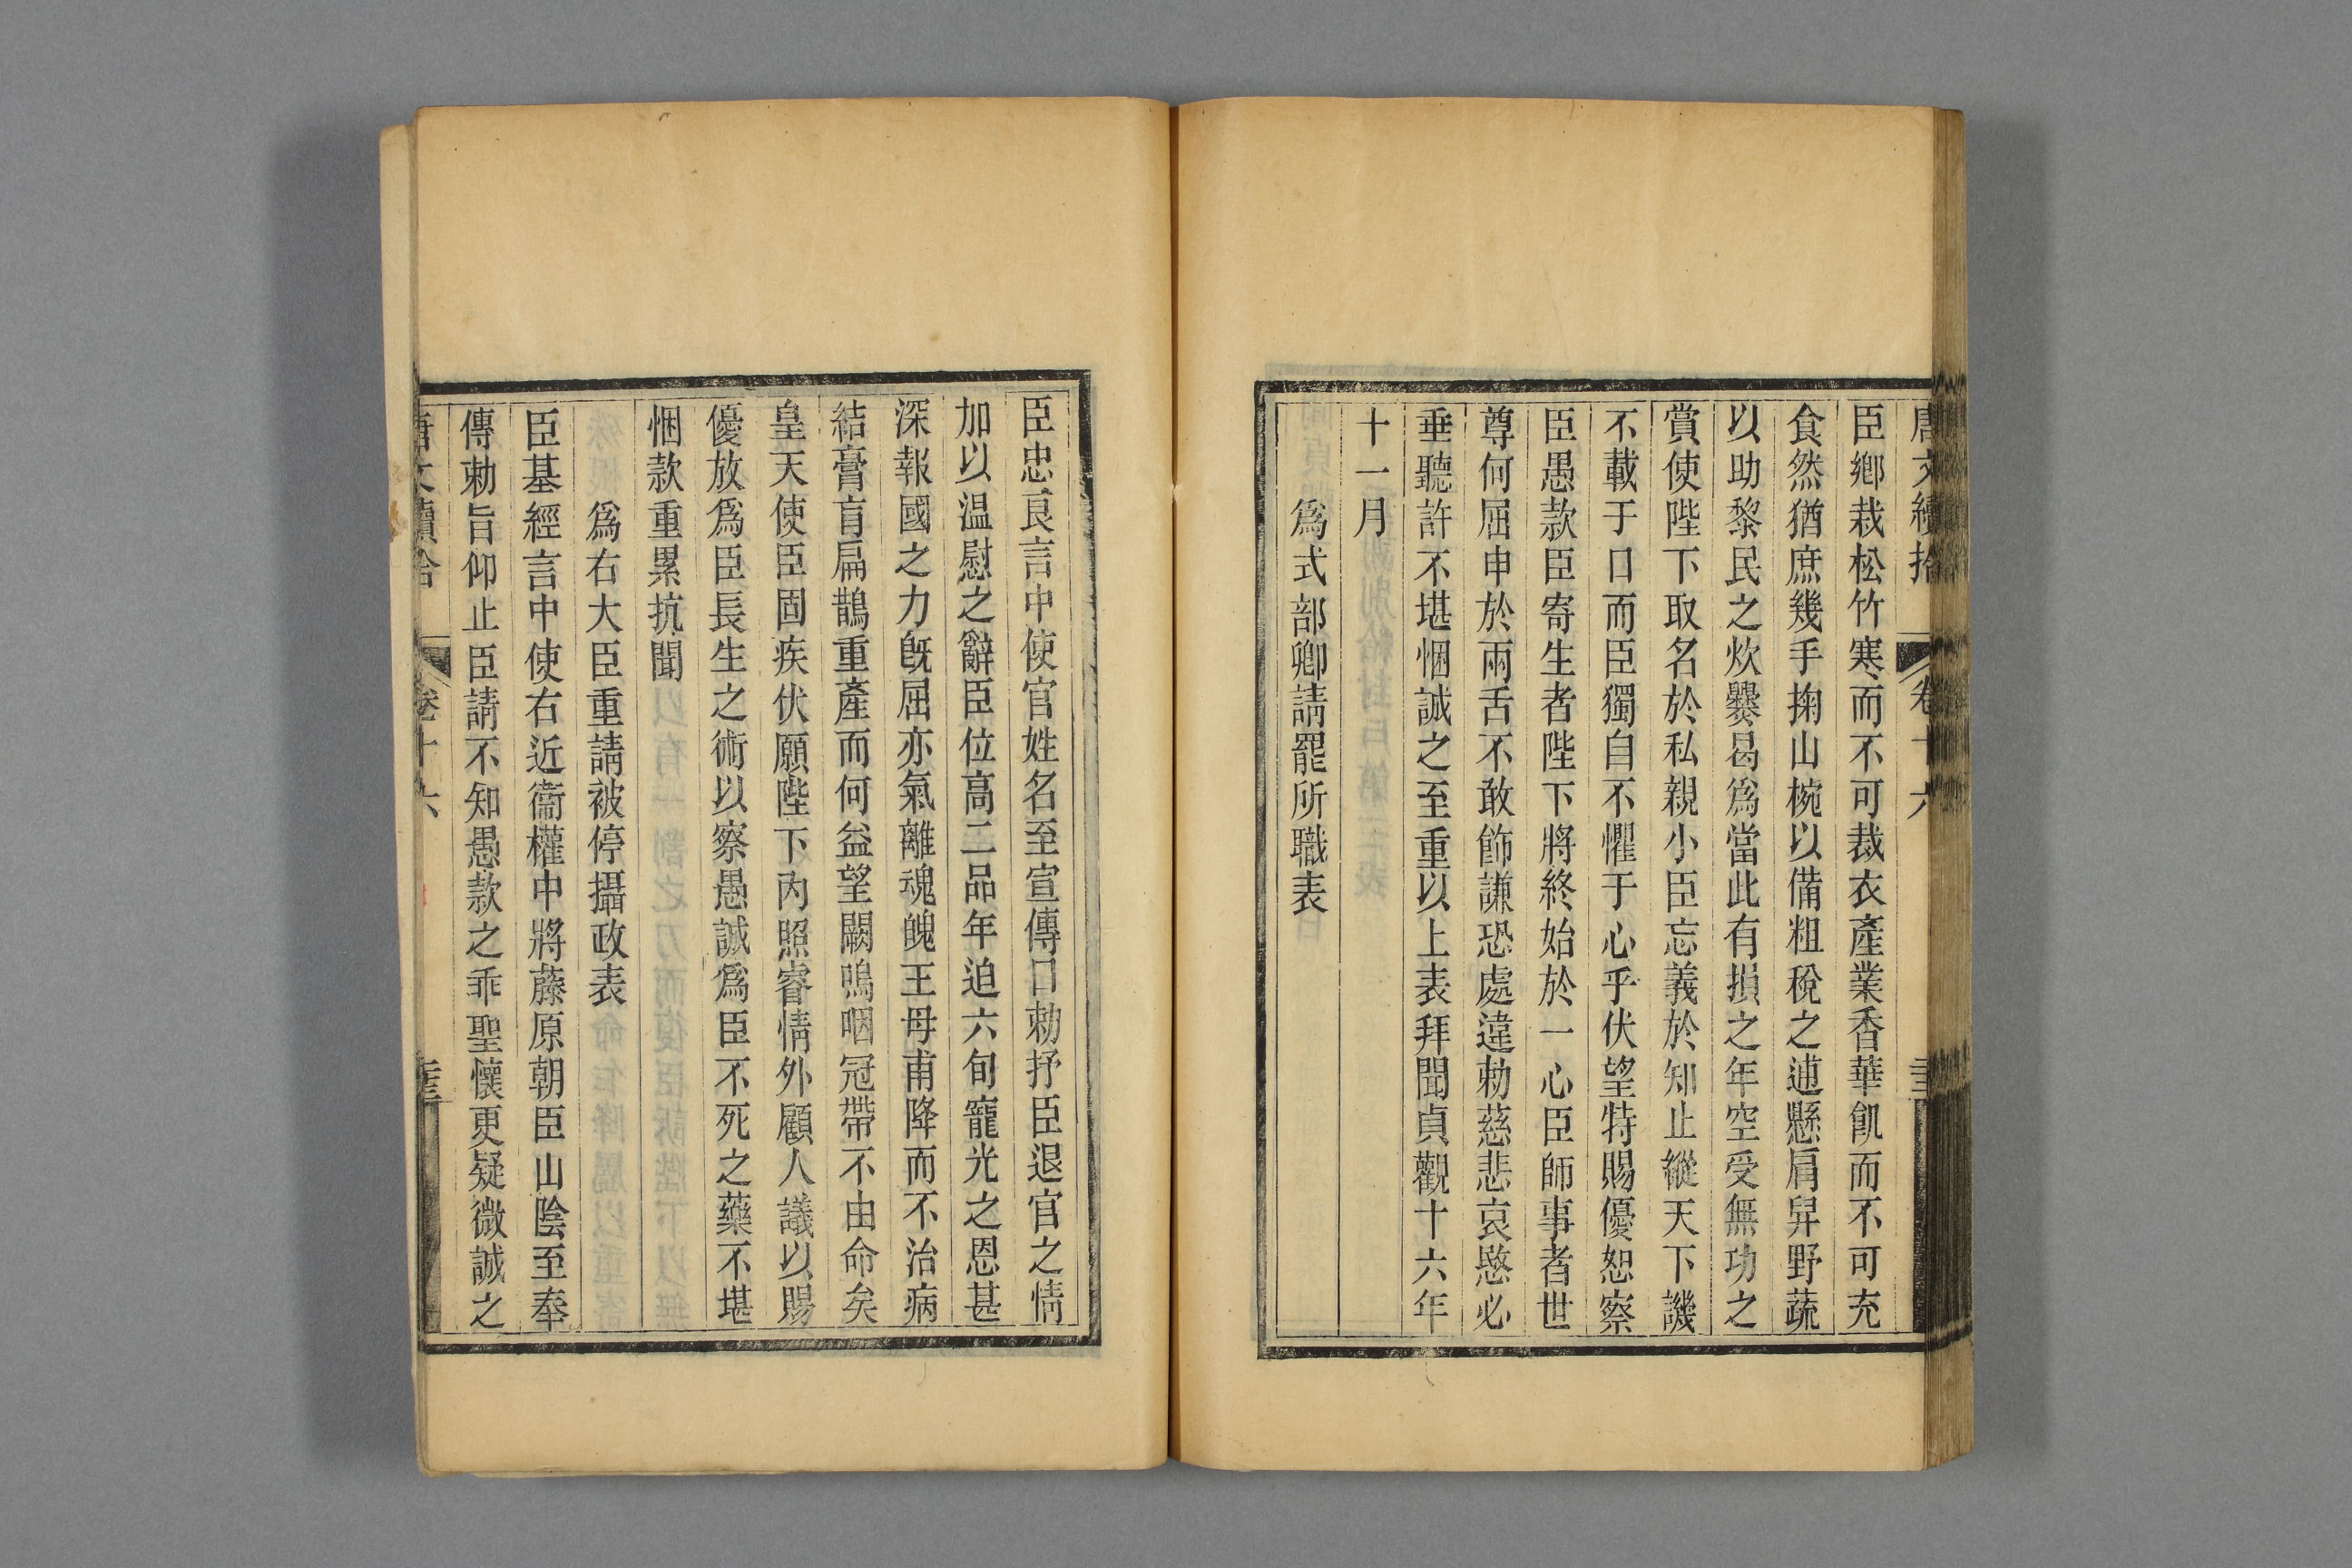 唐文續拾 卷十六
臣鄉栽松竹寒而不可裁衣產業香華飢而不可充
食然猶庶幾手掬山椀以備粗稅之逋懸肩舁野蔬
以助黎民之炊爨曷爲當此有損之年空受無功之
賞使陛下取名於私親小臣忘義於知止縱天下譏
不載于口而臣獨自不懼于心乎伏望特賜優恕察
臣愚款臣寄生者陛下將終始於一心臣師事者世
尊何屈申於兩舌不敢飾謙恐處違勅慈悲哀愍必
垂聽許不堪悃誠之至重以上表拜聞貞觀十六年
十一月
爲式部卿請罷所職表
臣忠良言中使官姓名至宣傳口勅抒臣退官之情
加以温慰之辭臣位高二品年迫六旬寵光之恩甚
深報國之力旣屈亦氣離魂魄王母甫降而不治病
結膏肓扁鵲重產而何益望闕嗚咽冠帶不由命矣
皇天使臣固疾伏願陛下內照睿情外顧人議以賜
優放爲臣長生之術以察愚誠爲臣不死之藥不堪
悃款重累抗聞
爲右大臣重請被停攝政表
臣基經言中使右近衞權中將藤原朝臣山陰至奉
傳勅旨仰止臣請不知愚款之乖聖懷更疑微誠之
唐文續拾 卷十六